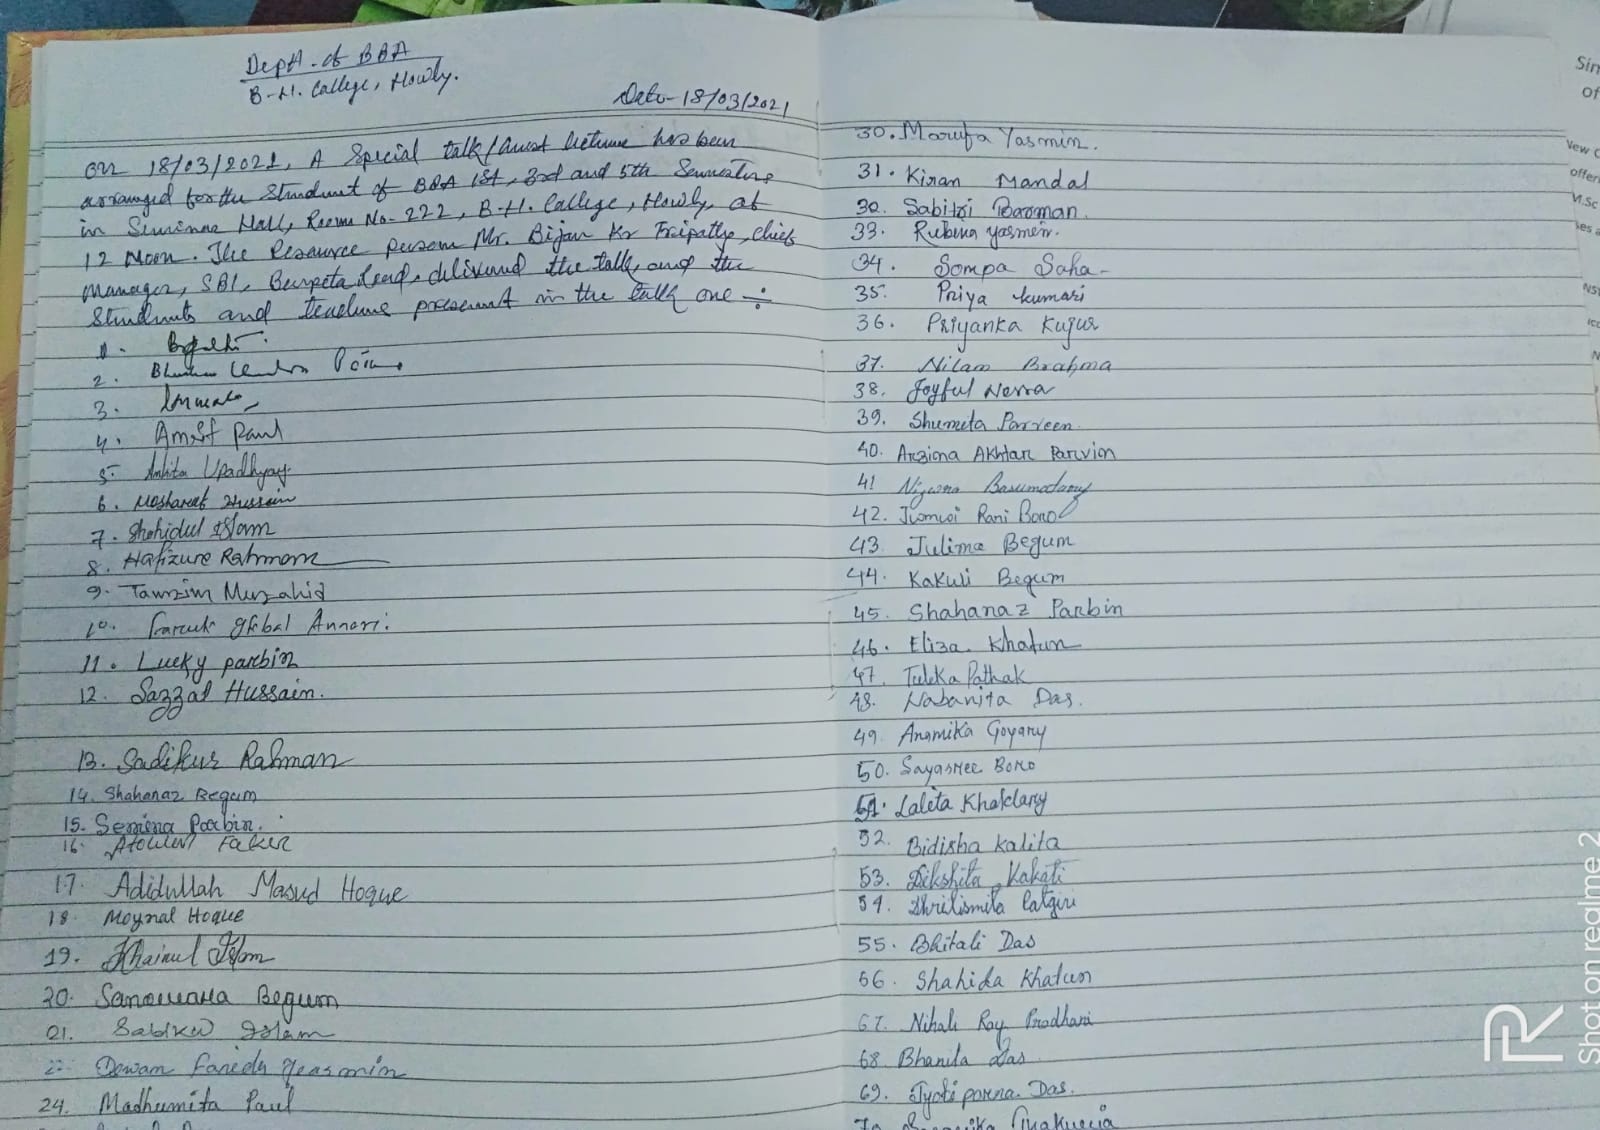 Deptt. of BBA
B.H. College, Howly.
Date-18/03/2021
On 18/03/2021, A Special talk/Guest lecture has been
arranged for the Student of BBA 1st, 3rd and 5th Semesters
in Seminar Hall, Room No-222, B.H. College, Howly, at
12 Noon. The Resource person Mr. Bijan Kr Tripathy, Chief
Manager, SBI, Barpeta Road, delivered the talk, and the
Students and teachers present in the talk are ÷
1.
2.
3.
4. Amit Paul
5. Ankita Upadhyay
6. Mosharaf Hussain
7. Shahidul Islam
8. Hafizure Rahman
9. Tamzim Muzahid
10. Faruk Annari.
11. Lucky parbin
12. Sazzal Hussain.
13. Sadikur Rahman
14. Shahanaz Begum
15. Semina Parbin.
16. Faker
17. Adidullah Masud Hoque
18 Moynal Hoque
19. Khairul Islam
20. Sanowara Begum
21. Islam
Dewan Farida Yeasmin
24. Madhumita Paul
30. Marufa Yasmin.
31. Kiran Mandal
30. Sabitri Barman.
33. Rubina yasmin.
34. Sompa Saha-
35. Priya kumari
36. Priyanka Kujur
37. Nilam Brahma
38. Joyful Nessa
39. Shumita Parveen.
40. Arzima Akhtar Parvin
41 Basumatary
42. Rani Boro
43. Julima Begum
44. Kakuli Begum
45. Shahanaz Parbin
46. Eliza Khatun
47. Pathak
48. Nabanita Das.
49. Anamika Goyary
50. Sayasree Boro
51. Lalita Khaklary
52. Bidisha Kalita
53. Dikshita Kakati
54. Dhritismita Patgiri
55. Bhitali Das
56. Shahida Khatun
67. Nihali Ray Pradhani
68. Bhanita Das
69. Jyoti parna Das.
70
Shot on realme 2
Sin
of
New C
offeri
M.Sc